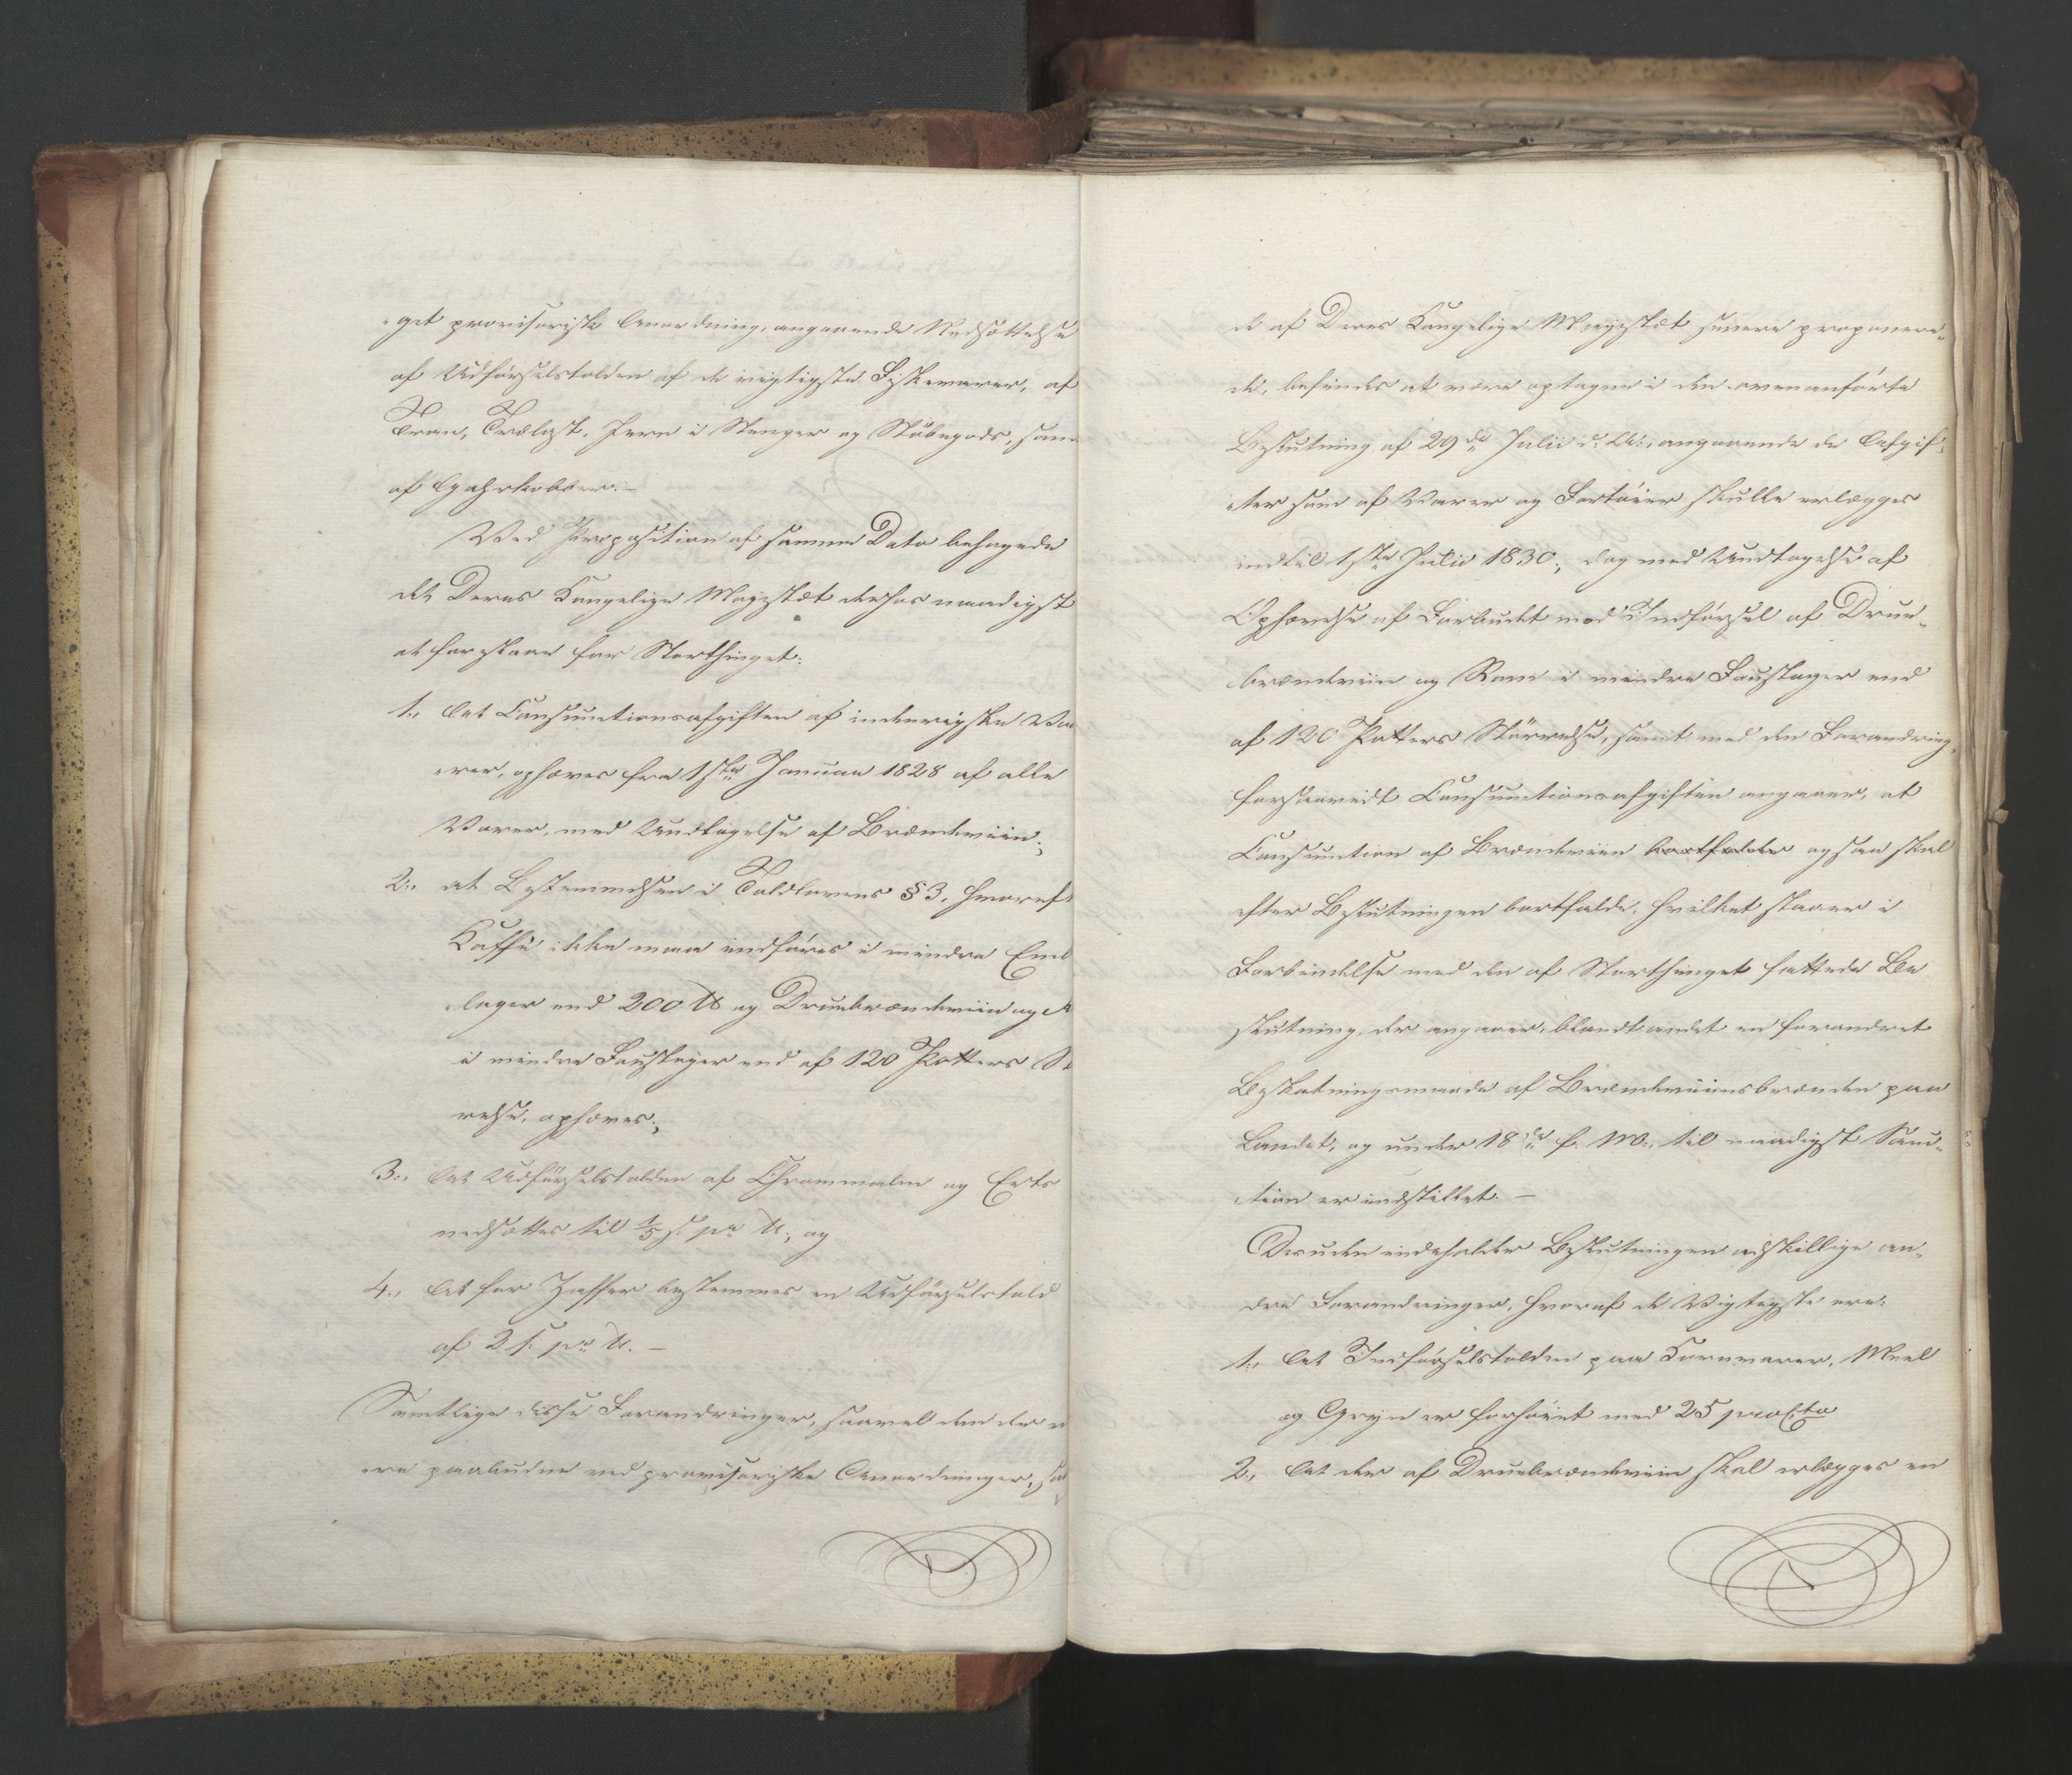 get provisorisk Anordning, angaaende Nedsættelse
af Udførselstolden af de vigtigste Fiskevarer, af
Tran, Trælast, Jern i Stænger og Støbegods, sam
af Gahrkobber.–
Ved Proposition af samme Dato behagede
det Deres Kongelige Majestæt derhos naadigst
at foreslaae for Storthinget:
1., At Consumtionsafgiften af indenrigske Va
rer, ophæves fra 1ste Januar 1828 af alle
Varer, med Undtagelse af Brændeviin;
2., at Bestemmelsen i Toldlovens § 3, hvoref
Kaffe ikke maa indføres i mindre Emb
lager end 200 ℔ og Druebrændeviin og R
i mindre Fustager end af 120 Potters St
relse, ophæves;
3., At Udførselstolden af Chrommalm og Erts
nedsættes til 1/5 s. pr ℔; og
4., At for Zaffer bestemmes en Udførselstold
af 2 s. pr ℔. –
Samtlige disse Forandringer, saavel dem der
ere paabudne ved provisoriske Anordninger, so
de af Deres Kongelige Majestæt senere propone­re-
de, befindes at være optagne i den ovenanførte
Beslutning af 29de Julii d. A., angaaende de Afgif-
ter som af Varer og Fartøier skulle erlægges
indtil 1ste Julii 1830; dog med Undtagelse af
Ophævelse af Forbudet mod Indførsel af Drue-
brændeviin og Rom i mindre Fustager end
af 120 Potters Størrelse, samt med den Forandring,
forsaavidt Consumtionsafgiften angaaer, at
Consumtion af Brændeviin bortfalder ogsaa skal
efter Beslutningen bortfalde, hvilket staaer i
Forbindelse med den af Storthinget fattede Be
slutning, der angaaer blandt andet en forandret
Beskatningsmaade af Brændeviinsbrænden paa
Landet, og under 18de f. M. til naadigst Sanc-
tion er indstillet. –
Desuden indeholder Beslutningen adskillige an-
dre Forandringer, hvoraf de Vigtigste ere:
1., At Indførselstolden paa Kornvarer, Meel
og Gryn er forhøiet med 25 proCto
2., At der af Druebrændeviin skal erlægges en